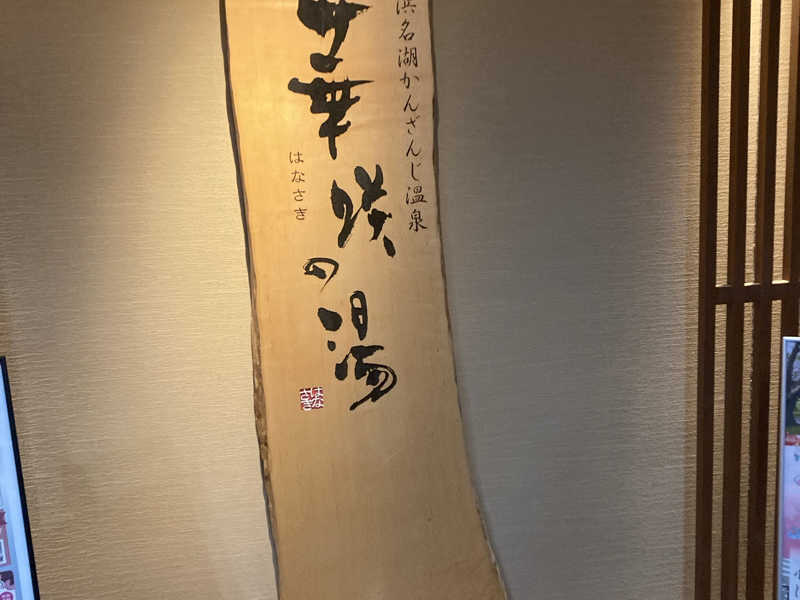 浜名湖かんざんじ温泉
華咲の湯
はなさき
はなさき